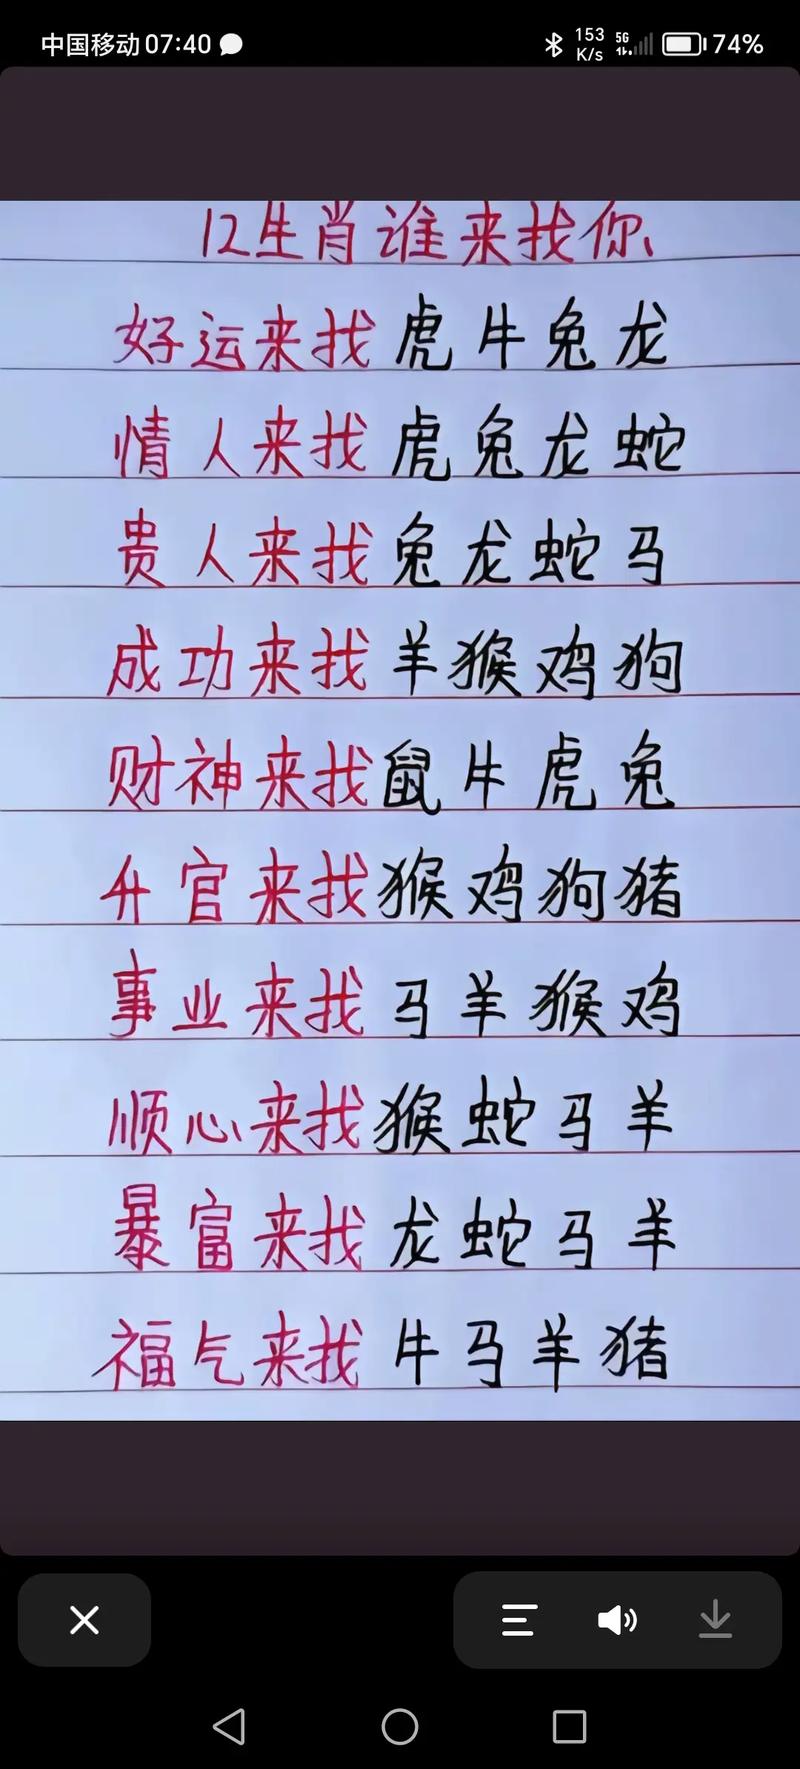 中国移动 07:40 153 K/s 5G 74%
12生肖谁来找你
好运来找虎牛兔龙
情人来找虎兔龙蛇
贵人来找兔龙蛇马
成功来找羊猴鸡狗
财神来找鼠牛虎兔
升官来找猴鸡狗猪
事业来找马羊猴鸡
顺心来找猴蛇马羊
暴富来找龙蛇马羊
福气来找牛马羊猪